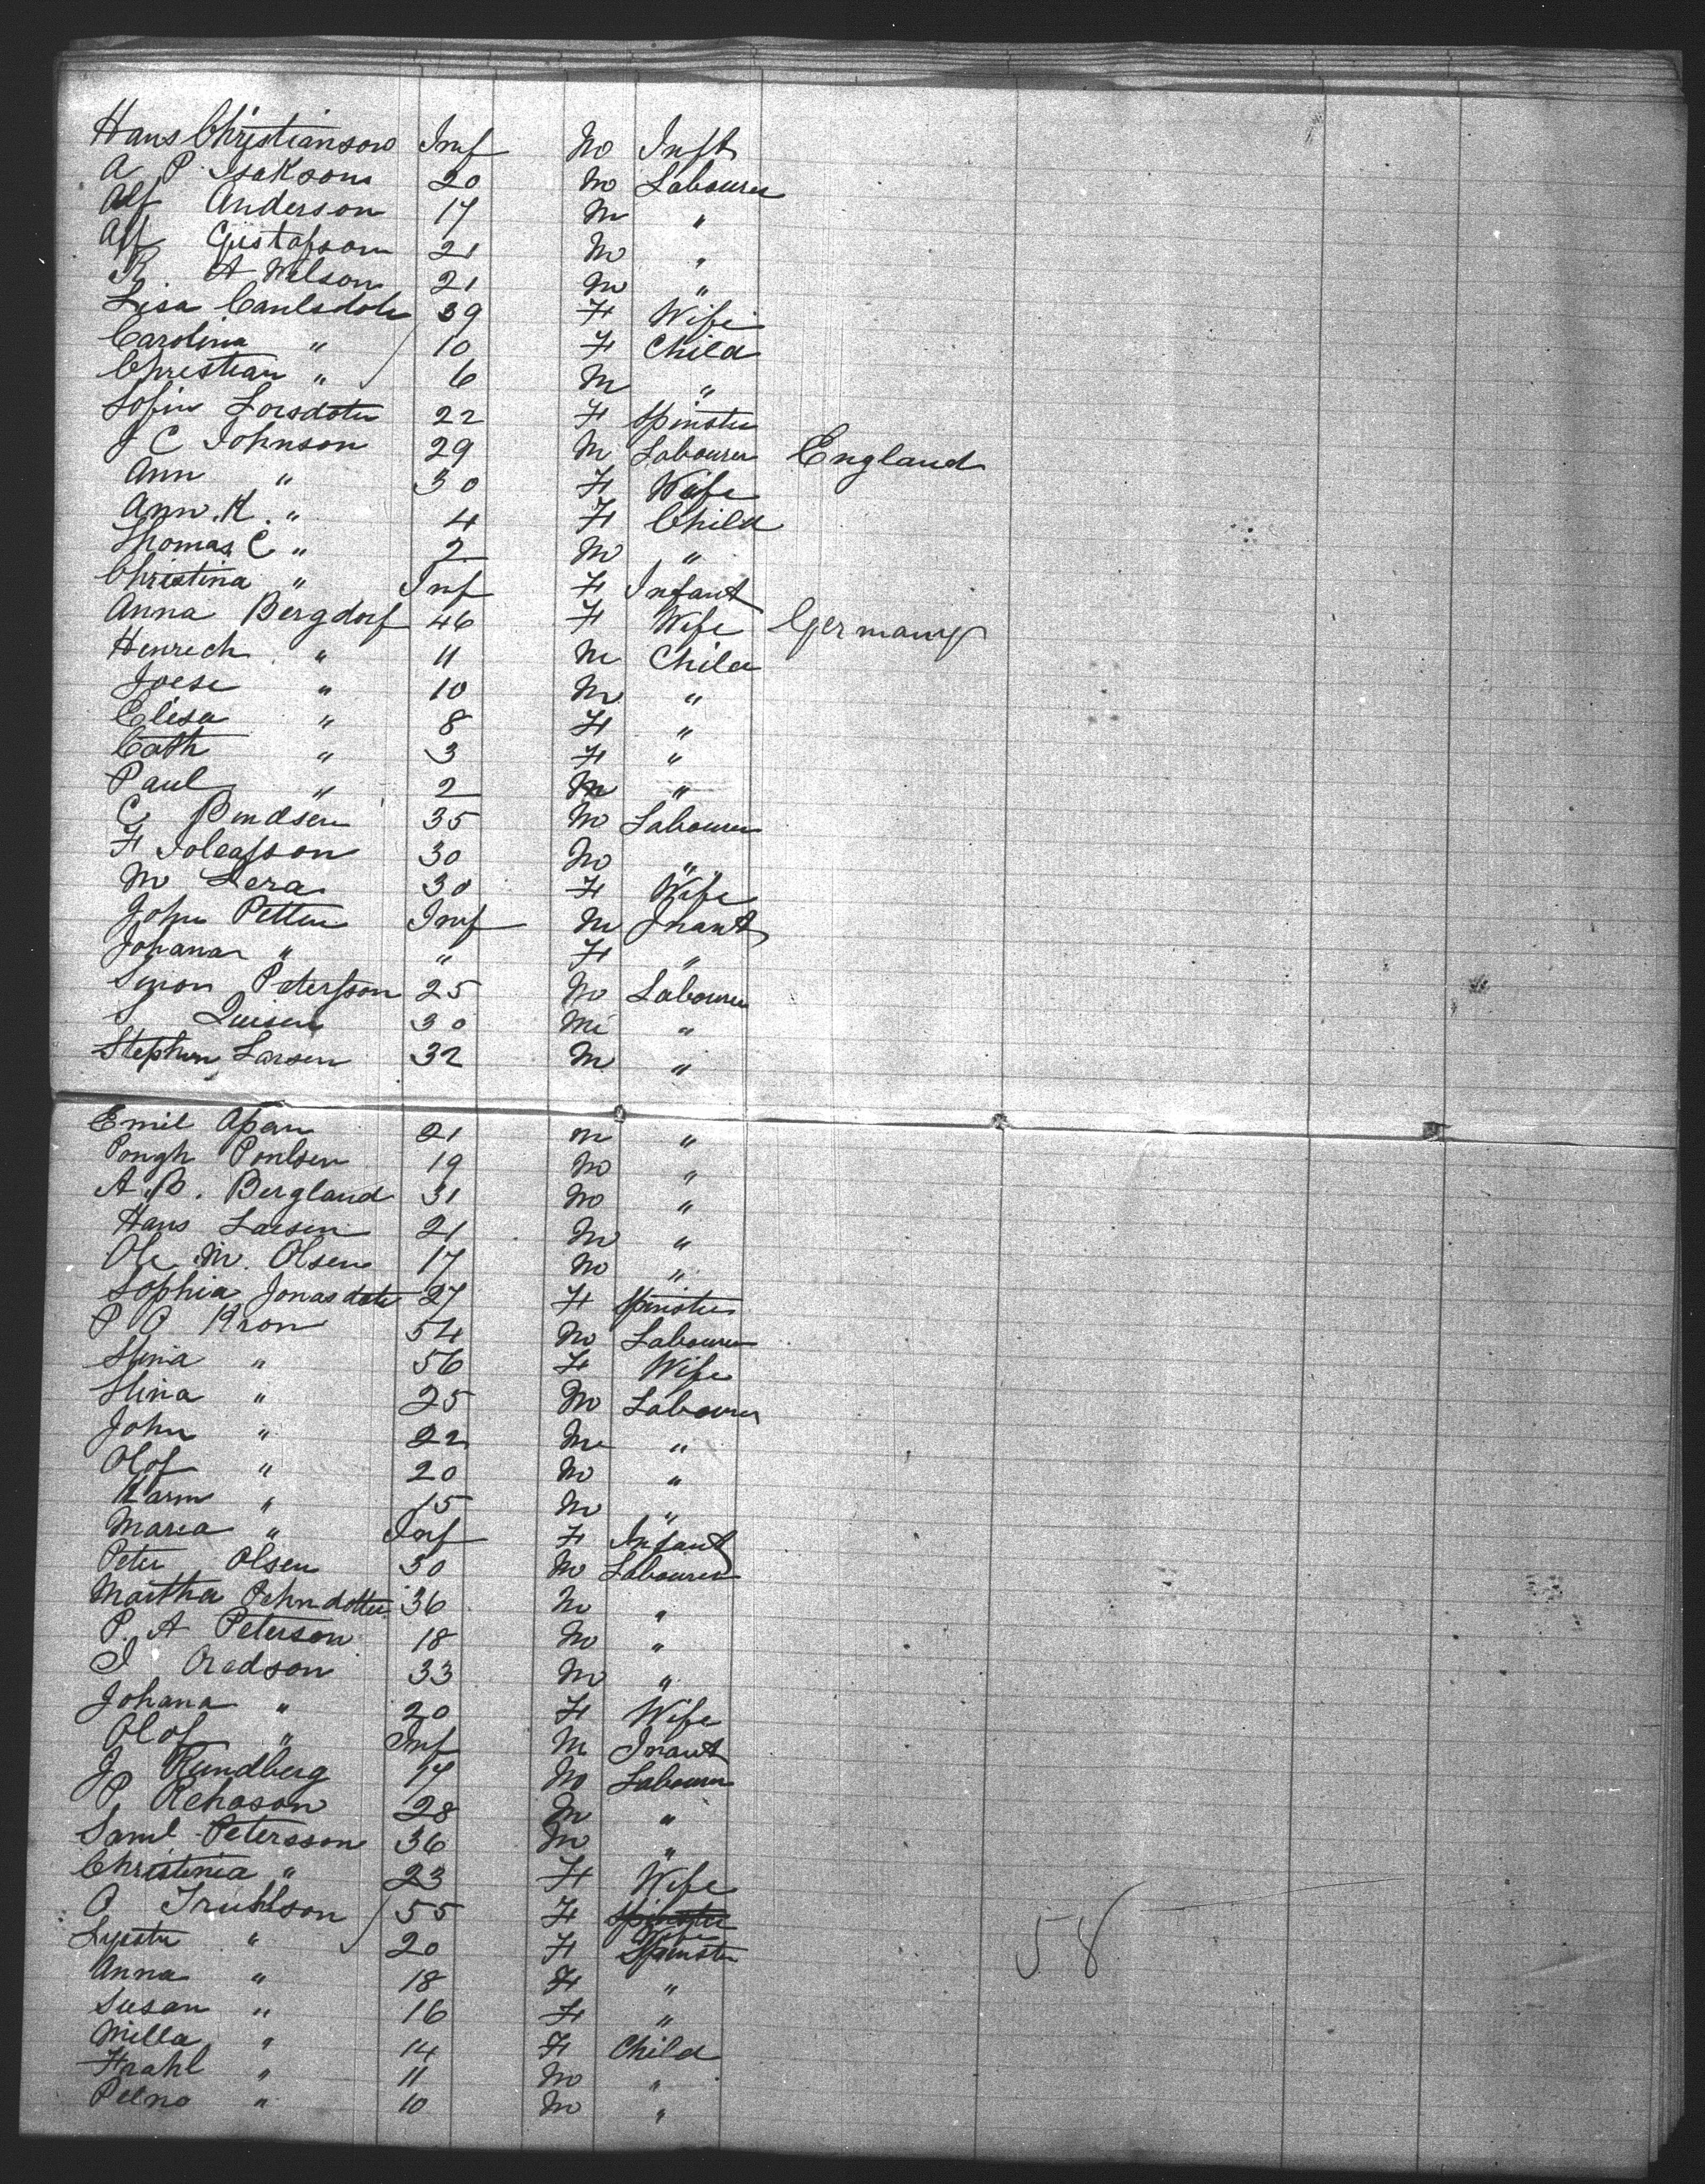 Hans Christianson Inf M Inft
A P Isakson 20 M Labourer
Alf Anderson 17 M "
Alf Gustafson 21 M "
R A Nelson 21 M "
Lisa Carlsdotr 39 F Wife
Carolina " 10 F Child
Christian " 6 M "
Sofin Larsdotter 22 F Spinster
J C Johnson 29 M Labourer England
Ann " 30 F Wife
Ann K. " 4 F Child
Thomas C " 2 M "
Christina " Inf F Infant
Anna Bergdorf 46 F Wife Germany
Henrech " 11 M Child
Joese " 10 M "
Elisa " 8 F "
Cath " 3 F "
Paul " 2 M "
C 35 M Labourer
F 30 M "
M Lera 30 F Wife
John Petter Inf M Inant
Johana " " F "
Simon Petersson 25 M Labourer
30 M "
Stephen Larsen 32 M "
Emil 21 M "
Poulsen 19 M "
A. B. Bergland 31 M "
Hans Larsen 21 M "
Ole M. Olsen 17 M "
Sophia Jonasdotr 27 F Spinster
P O Kron 54 M Labourer
Stina " 56 F Wife
Stina " 25 M Labourer
John " 22 M "
Olof " 20 M "
Karin " 15 M "
Maria " Inf F Infant
Peter Olsen 30 M Labourer
Martha 36 M "
P. A Peterson 18 M "
I Oredson 33 M "
Johana " 20 F Wife
Olof " Inf M Inant
J Rundberg 17 M Labourer
P 28 M "
Saml Petersson 36 M "
Christinia " 23 F Wife
O Truhlson 55 F Spinster Wife
" 20 F Spinster
Anna " 18 F "
Susan " 16 F "
Milla " 14 F Child
" 11 M "
" 10 M "
58